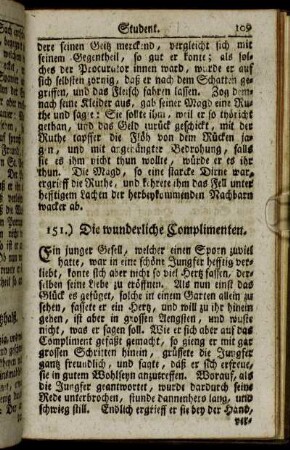 Student. 109
dere seinen Geitz merckend, vergleicht sich mit
seinem Gegentheil, so gut er konte; als sol-
ches der Procurator innen ward, wurde er auf
sich selbsten zornig, daß er nach dem Schatten ge-
griffen, und das Fleisch fahren lassen. Zog dem-
nach seine Kleider aus, gab seiner Magd eine Ru-
the und sagte: Sie solte ihm, weil er so thöricht
gethan, und das Geld zurück geschickt, mit der
Ruthe tapffer die Flöh von dem Rücken ja-
gen, und mit angehängter Bedrohung, falls
sie es ihm nicht thun wolte, würde er es ihr
thun. Die Magd, so eine starcke Dirne war,
ergriff die Ruthe, und kehrete ihm das Fell unter
hefftigem Lachen der herbeykommenden Nachbarn
wacker ab.
151.) Die wunderliche Complimenten.
Ein junger Gesell, welcher einen Sporn zuviel
hatte, war in eine schöne Jungfer hefftig ver-
liebt, konte sich aber nicht so viel Hertz fassen, der-
selben seine Liebe zu eröffnen. Als nun einst das
Glück es gefüget, solche in einem Garten allein zu
sehen, fassete er ein Hertz, und will zu ihr hinein
gehen, ist aber in grossen Aengsten, und wuste
nicht, was er sagen soll. Wie er sich aber auf das
Compliment gefaßt gemacht, so gieng er mit gar
grossen Schritten hinein, grüssete die Jungfer
gantz freundlich, und sagte, daß er sich erfreue,
sie in gutem Wohlseyn anzutreffen. Worauf, als
die Jungfer geantwortet, wurde dardurch seine
Rede unterbrochen, stunde dannenhero lang, und
schwieg still. Endlich ergrieff er sie bey der Hand,